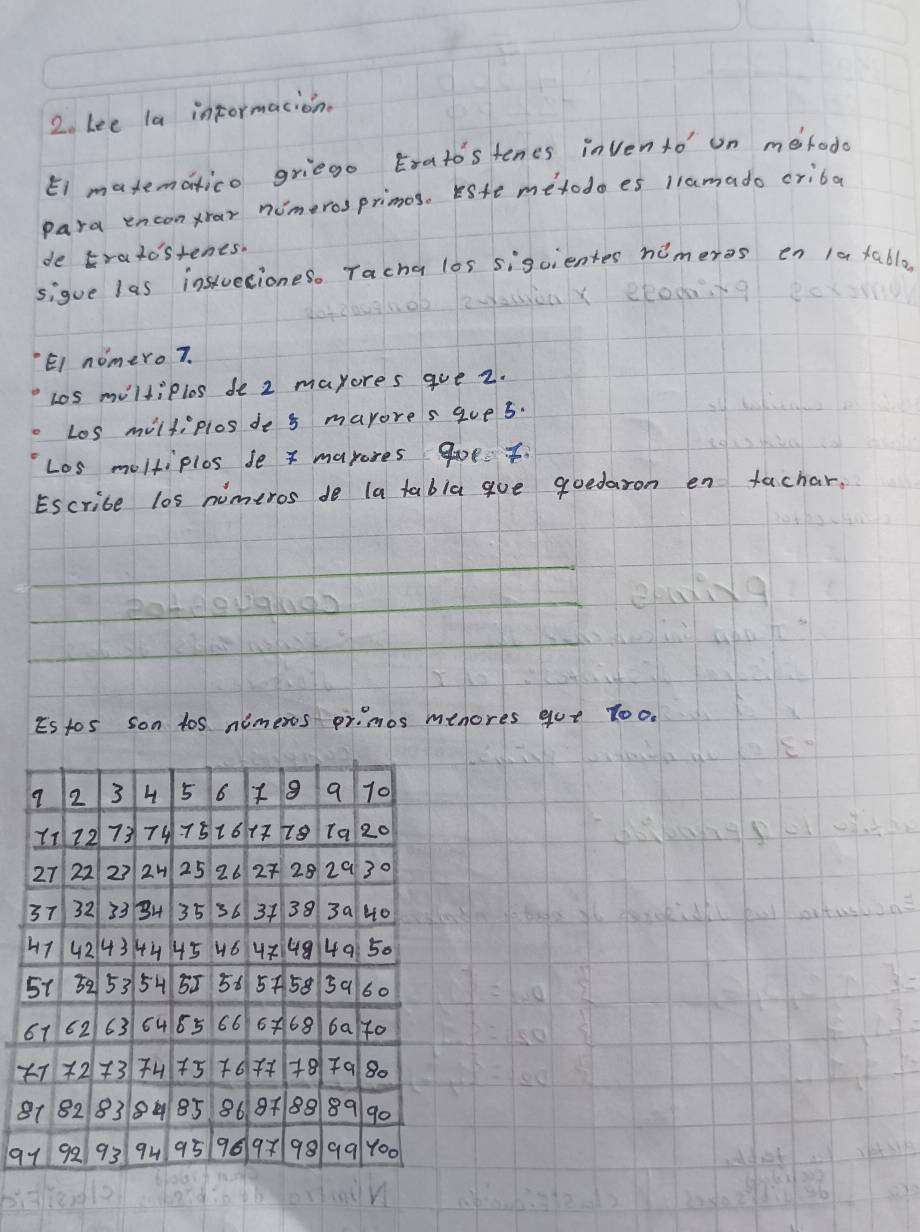 2. Lee la información.
El matemático griego Eratóstenes inventó un método
para encontrar números primos. Este método es llamado criba
de Eratóstenes.
sigue las instrucciones. Tacha los siguientes números en la tabla.
• El número 1.
• Los múltiplos de 2 mayores que 2.
• Los múltiplos de 5 mayores que 5.
• Los multiplos de 7 mayores que 7.
Escribe los números de la tabla que quedaron en tachar.
Estos son los números primos menores que 100.
1 2 3 4 5 6 7 8 9 10
11 12 13 14 15 16 17 18 19 20
21 22 23 24 25 26 27 28 29 30
31 32 33 34 35 36 37 38 39 40
41 42 43 44 45 46 47 48 49 50
51 52 53 54 55 56 57 58 59 60
61 62 63 64 65 66 67 68 69 70
71 72 73 74 75 76 77 78 79 80
81 82 83 84 85 86 87 88 89 90
91 92 93 94 95 96 97 98 99 100